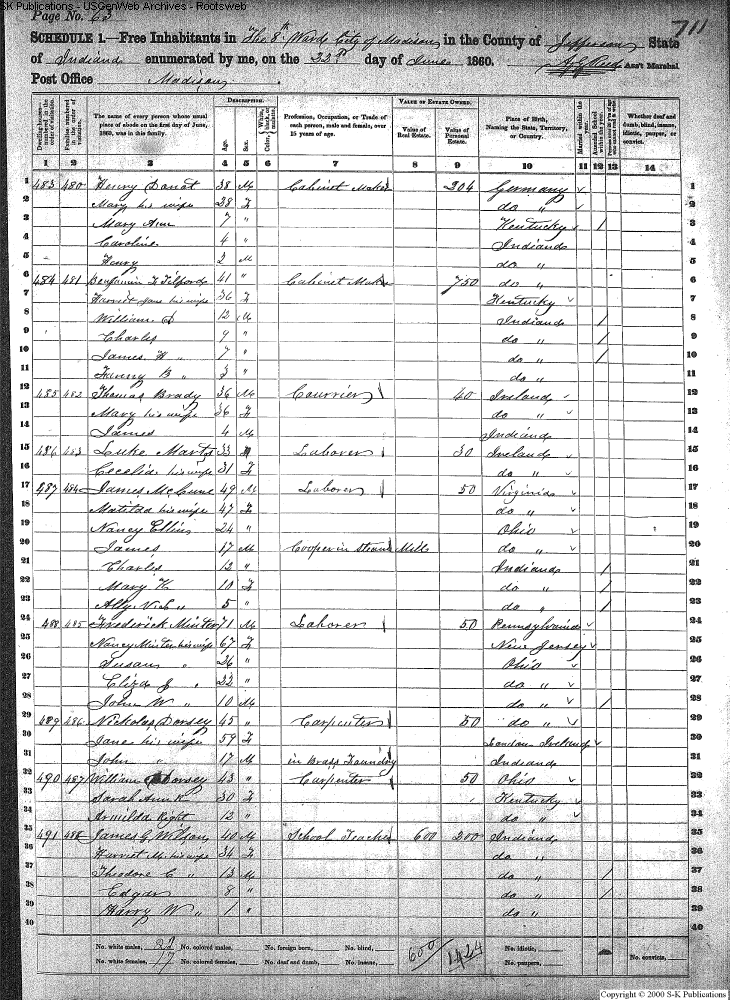 SK Publications - USGenWeb Archives - Rootsweb
Page No. 63
711
SCHEDULE 1.—Free Inhabitants in The 8th Ward City of Madison in the County of Jefferson State
of Indiana enumerated by me, on the 22d day of June 1860. Ass't Marshal
Post Office Madison
Dwelling-houses— numbered in the order of visitation.
Families numbered in the order of visitation.
The name of every person whose usual place of abode on the first day of June, 1860, was in this family.
DESCRIPTION.
Age.
Sex.
Color, White, black, or mulatto.
Profession, Occupation, or Trade of each person, male and female, over 15 years of age.
VALUE OF ESTATE OWNED.
Value of Real Estate.
Value of Personal Estate.
Place of Birth, Naming the State, Territory, or Country.
Married within the year.
Attended School within the year.
Whether deaf and dumb, blind, insane, idiotic, pauper, or convict.
1 2 3 4 5 6 7 8 9 10 11 12 13 14
1 483 480 Henry Donat 38 M Cabinet Maker 204 Germany 1
2 Mary his wife 38 F do " 2
3 Mary Ann 7 " Kentucky / 3
4 Caroline 4 " Indiana 4
5 Henry 2 M do " 5
6 484 481 Benjamin F Tilford 41 " Cabinet Maker 750 do " 6
7 Harriet Jane his wife 36 F Kentucky 7
8 William 12 M Indiana / 8
9 Charles 9 " do " / 9
10 James H " 7 " do " / 10
11 Fanny B " 3 " do " 11
12 485 482 Thomas Brady 36 M Courrier 40 Ireland 12
13 Mary his wife 36 F do " 13
14 James 4 M Indiana 14
15 486 483 Luke Martys 33 M Laborer 30 Ireland 15
16 Cecelia his wife 31 F do " 16
17 487 484 James McCune 49 M Laborer 50 Virginia 17
18 Matilda his wife 47 F do " 18
19 Nancy Ellin 24 " Ohio 19
20 James 17 M Cooper in steam Mill do " 20
21 Charles 12 " Indiana / 21
22 Mary K 10 F do " / 22
23 Ally " 5 " do " / 23
24 488 485 Frederick Minter 71 M Laborer 50 Pennsylvania 24
25 Nancy Minter his wife 67 F New Jersey 25
26 Susan " 26 " Ohio 26
27 Eliza J " 22 " do " 27
28 John W " 10 M do " / 28
29 489 486 Nickolas Dorsey 45 " Carpenter 50 do " 29
30 Jane his wife 59 F London Ireland 30
31 John " 17 M in Brass Foundry Indiana 31
32 490 487 William Dorsey 43 " Carpenter 50 Ohio 32
33 Sarah Ann K 30 F Kentucky 33
34 Armilda Right 12 " do " 34
35 491 488 James G Wilson 40 M School Teacher 600 200 Indiana 35
36 Harriet M his wife 34 F do " 36
37 Theodore C " 13 M do " / 37
38 Edgar 8 " do " / 38
39 Harry W " 1 " do " 39
40 40
No. white males, 22 No. colored males, No. foreign born, No. blind, 600 1424 No. idiotic,
No. white females, 17 No. colored females, No. deaf and dumb, No. insane, No. paupers, No. convicts,
Copyright © 2000 S-K Publications